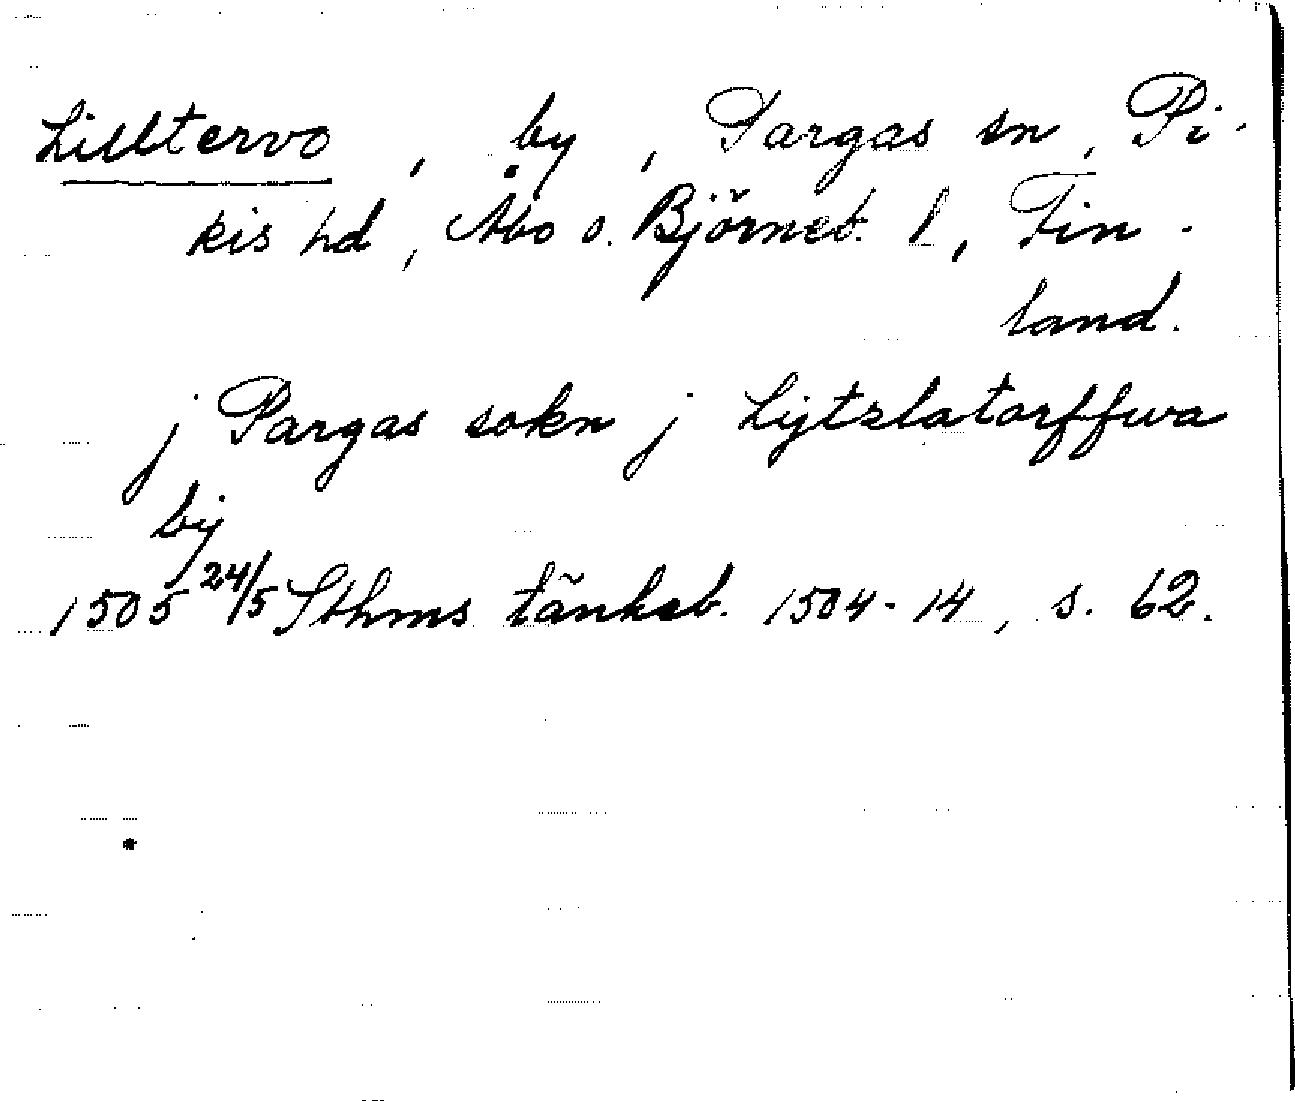 Lilltervo, by, Pargas sn, Pi-
kis hd, Åbo o. Björneb. l, Fin-
land.
j Pargas sokn j Lijtzlatorffwa
bij
1505 24/5 Sthms tänkeb. 1504-14, s. 62.